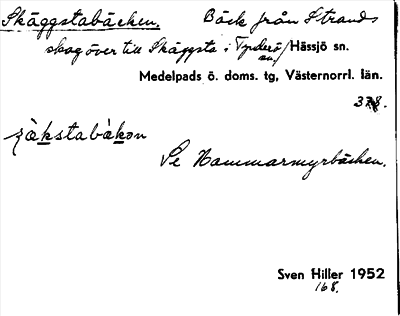 Skäggstabäcken. Bäck från Strands
skog över till Skäggsta i Tynderö sn./Hässjö sn.
Medelpads ö. doms. tg, Västernorrl. län.
Se Hammarmyrbäcken.
Sven Hiller 1952
168.